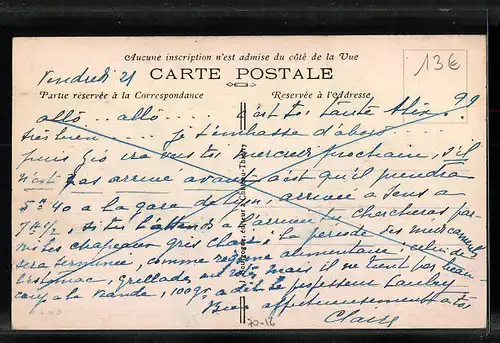 Aucune inscription n'est admise du côté de la Vue
Vendredi 21
CARTE POSTALE
13€
Partie réservée à la Correspondance
Réservée à l'Adresse
allô... allô... c'est toi tante Alix ??
très bien... je t'embrasse d'abord
puis Gio ira vers toi mercredi prochain, s'il
n'est pas arrivé avant c'est qu'il prendra
5h 40 à la gare de Lyon, arrivée à Sens à
7h 1/2, si tu l'attends à l'arrivée tu chercheras
chapeau gris clair : la période des medicaments
sera terminée, comme régime alimentaire : celui de
l'estomac, grillades, mais il ne tient pas
à la viande, 100 gr a dit le professeur
Bien affectueusement à toi
Claire
70-16